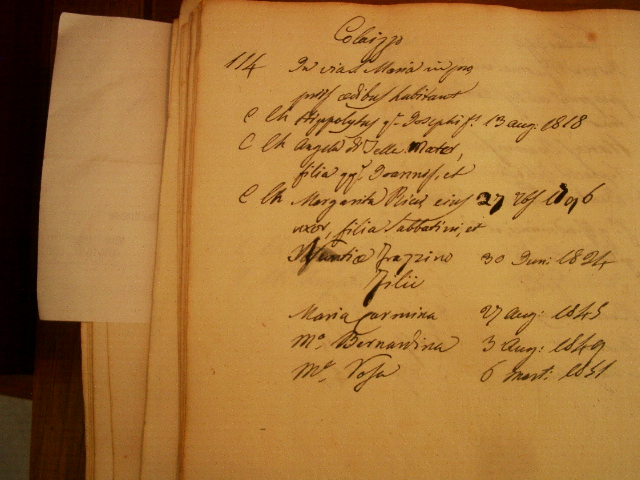 Colaizzo
114 In via S. Maria in pro
priis ædibus habitant
C Ch Hippolytus q.m Josephi f.s 13 aug: 1818
C Ch Angela di Lelle Mater,
filia q.m Joannis, et
C Ch Margarita Ricci eius 27 1796
uxor, filia Sabbatini, et
Frazzino 30 Jun: 1824
Filii
Maria Carmina 27 Aug: 1845
M.a Bernardina 3 Aug: 1849
M.a Rosa 6 Mart: 1851